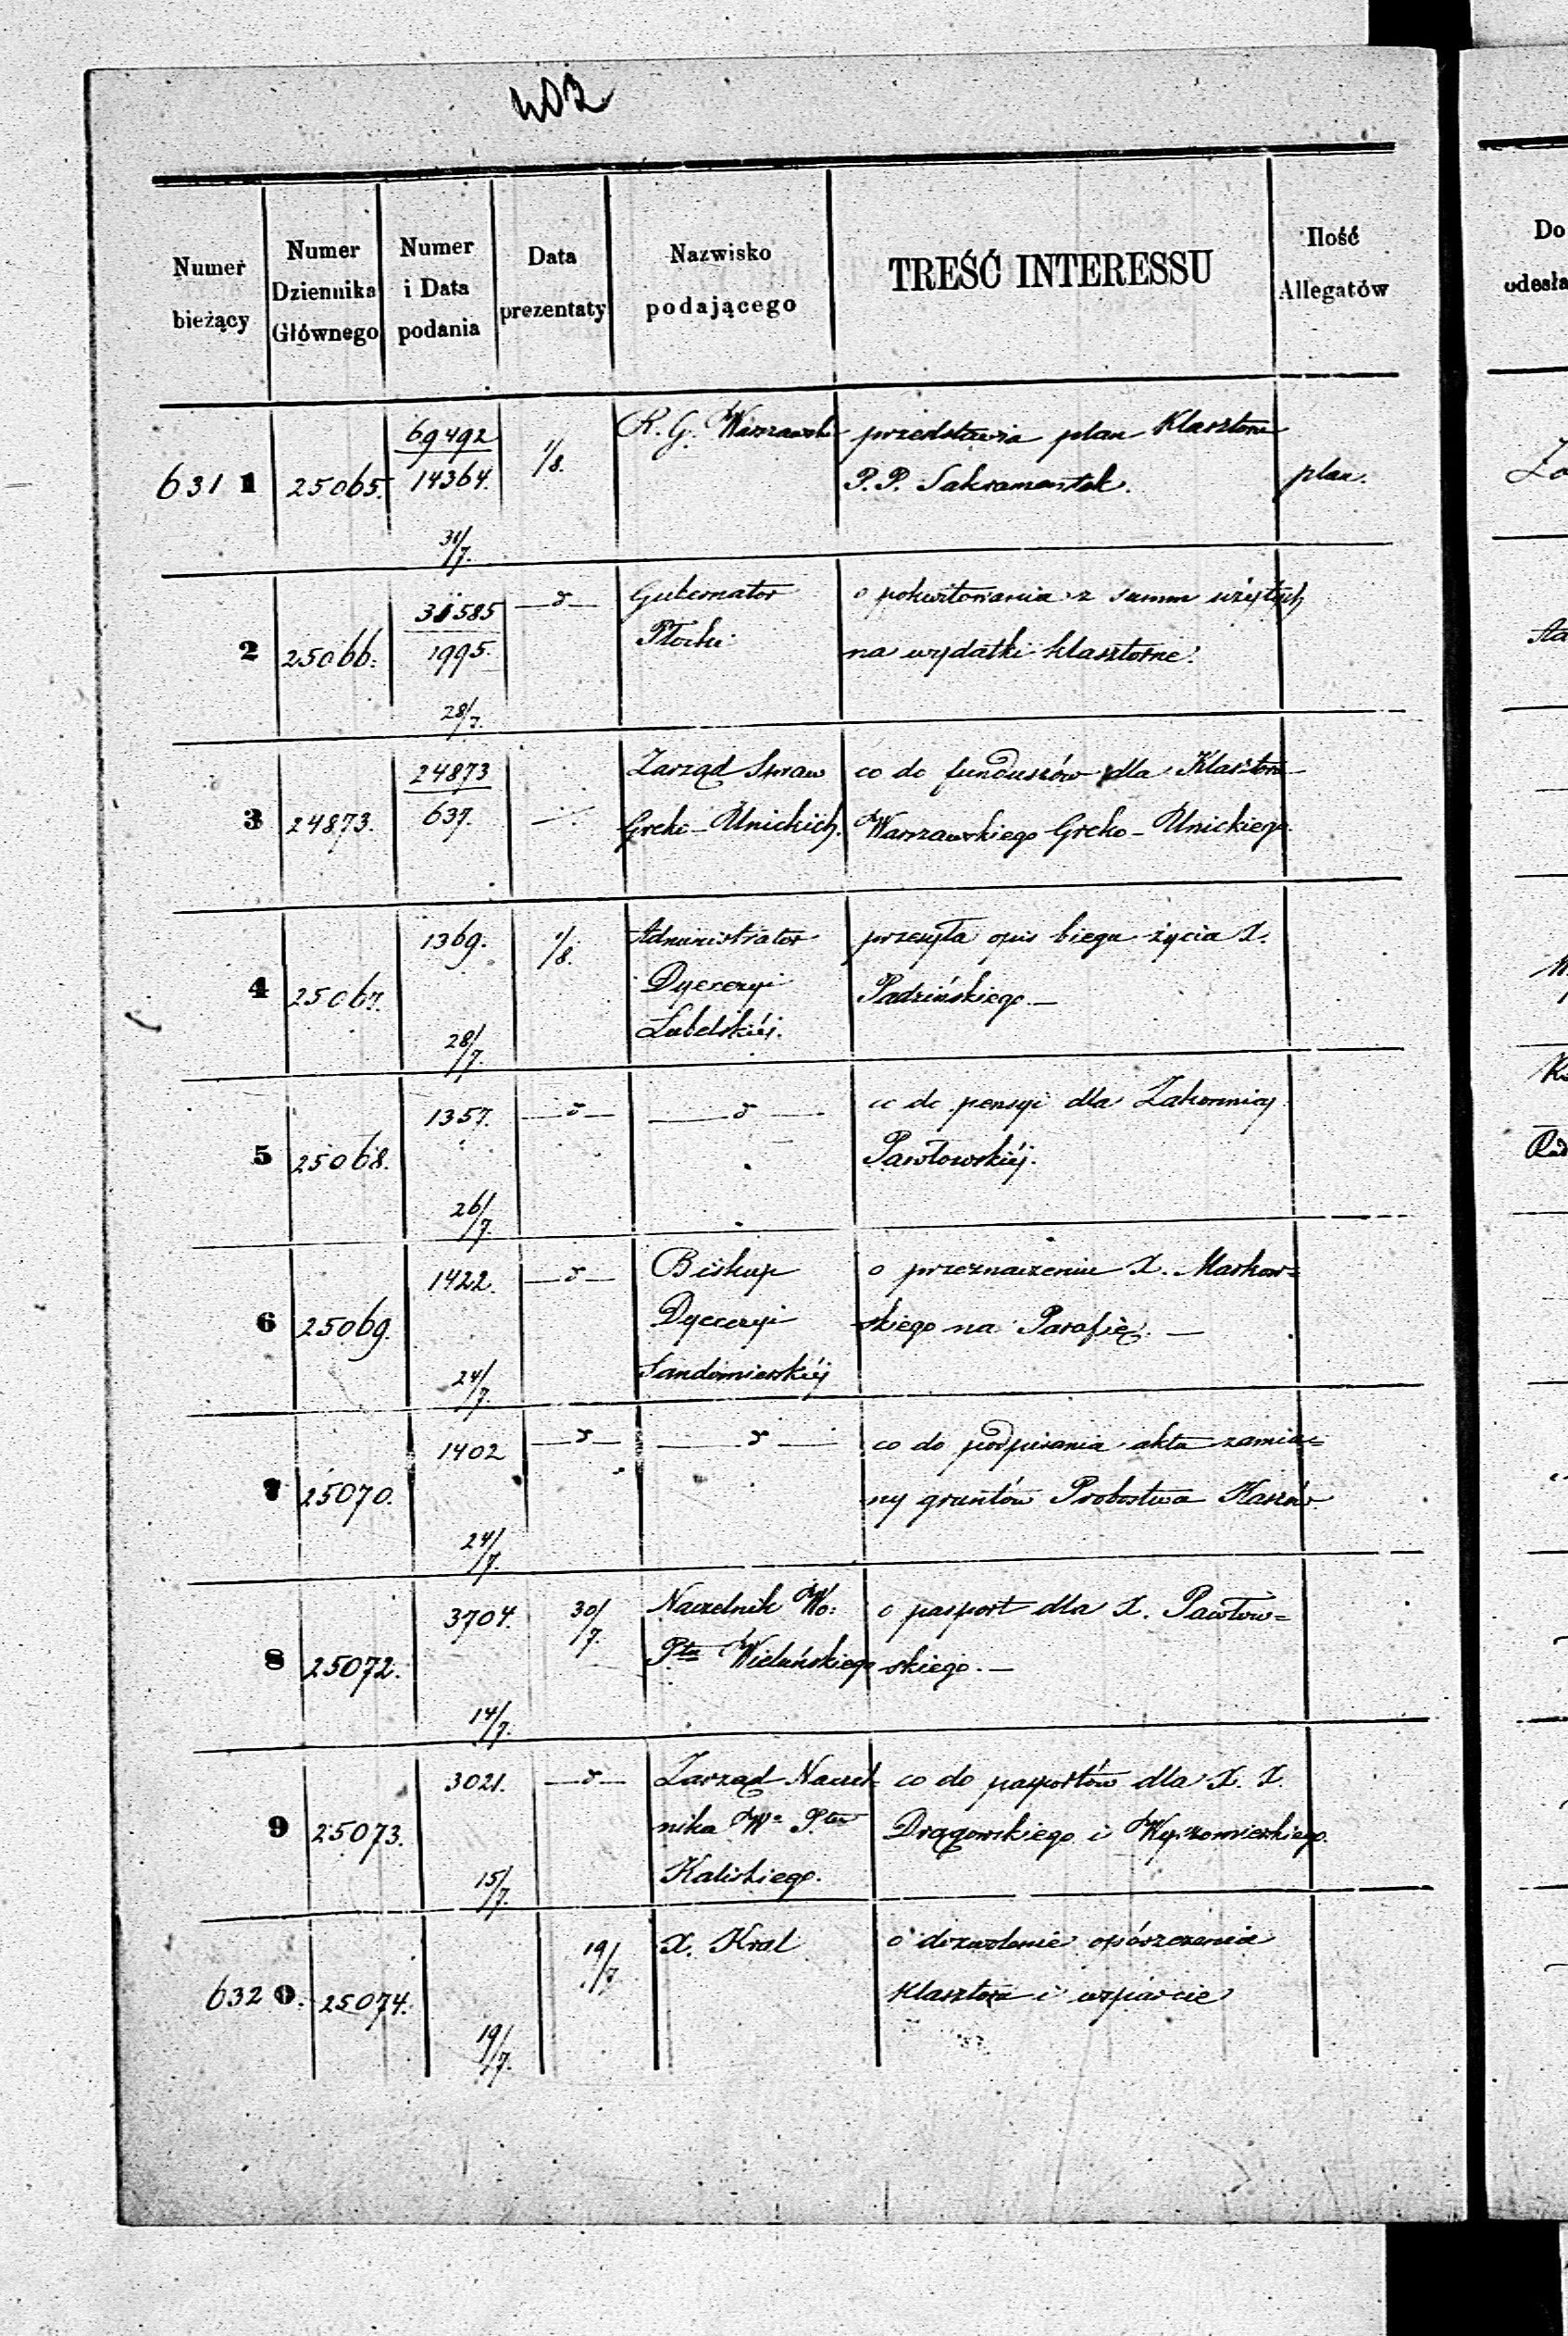 402
Numer bieżący
Numer Dziennika Głównego
Numer i Data podania
Data prezentaty
Nazwisko podającego
TREŚĆ INTERESSU
Ilość Allegatów
Do
odesła
6311 25065. 69492 1/8. R. G. Warszawski przedstawia plan Klasztoru
14364. P. P. Sakramentek. plan.
31/7.
2 25066. 31585 —d— Gubernator o pokwitowania z summ użytych
1995. Płocki na wydatki klasztorne.
28/7.
3 24873. 24873 Zarząd Spraw co do funduszów dla Klasztoru
637. Greko-Unickich. Warszawskiego Greko-Unickiego
4 25067. 1369. 1/8. Administrator przesyła opis biegu życia X.
Dyecezyi Padzińskiego.—
28/7. Lubelskiéj.
5 25068. 1357. —d— —d— co do pensyi dla Zakonnicy
Pawłowskiéj.
26/7.
6 25069. 1422. —d— Biskup o przeznaczeniu X. Markow=
Dyecezyi skiego na Parafię. —
24/7. Sandomierskiéj
7 25070. 1402 —d— —d— co do podpisania akta zamia=
ny gruntów Probostwa Kaszów
24/7.
8 25072. 3704. 30/7. Naczelnik Wo: o pasport dla X. Pawłow=
Ptu Wieluńskiego skiego.—
14/7.
9 25073. 3021. —d— Zarząd Naczel- co do pasportów dla X. X.
nika Wo Ptu Drągowskiego i
15/7. Kaliskiego.
6320. 25074. 19/7 X. Kral o dozwolenie opószczenia
klasztoru i wsparcie
19/7.